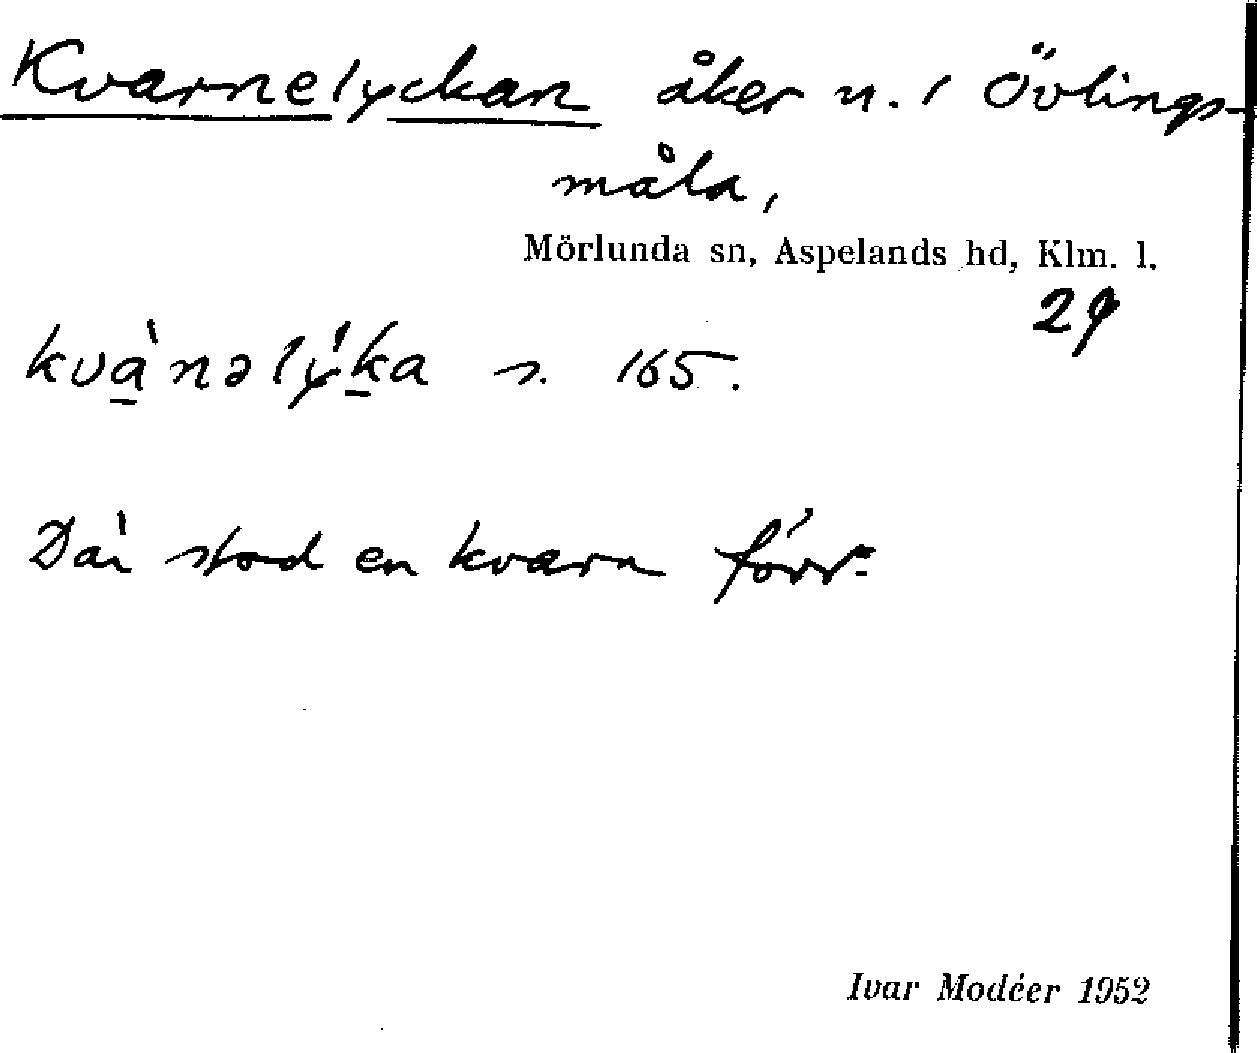 Kvarnelyckan åker n. 1 Övlings-
måla,
Mörlunda sn, Aspelands hd, Klm. l.
29
kvànəlýka s. 165.
Där stod en kvarn förr.
Ivar Modéer 1952